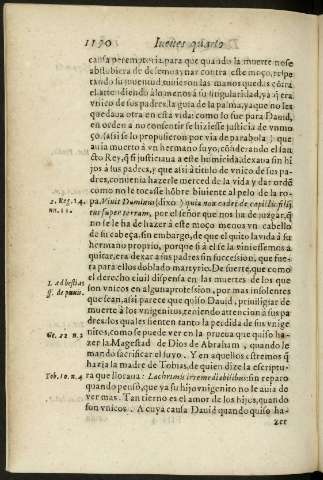 1190 Iueues quarto
causa peremptoria, para que quando la muerte no se
abstubiera de desemuaynar contra este moço, respe
tando su juuentud, tuuieron las manos quedas contra
el, atendiendo alomenos à su singularidad, ya q̃ era
vnico de sus padres, la guia de la palma, ya que no les
quedaua otra en esta vida: como lo fue para Dauid,
en orden a no consentir se hiziesse justicia de vn mo
ço, (assi se lo propusieron por via de parabola) que
auia muerto à vn hermano suyo, cõsiderando el san
cto Rey, q̃ si justiciaua a este humicida, dexaua sin hi
jos à sus padres, y que assi à titulo de vnico de sus pa
dres, conuenia hazerle merced de la vida y dar ordẽ
como no le tocasse hõbre biuiente al pelo de la ro-
2. Reg. 14. pa. Viuit Dominus (dixo) quia non cadet de capillis filij
nu. 11. tui super terram, por el señor que nos ha de juzgar, q̃
no se le ha de hazer à este moço menos vn cabello
de su cabeça, sin embargo, de que el quito la vida à su
hermano proprio, porque si à el se la viniessemos à
quitar, era dexar à sus padres sin succession, que fue-
ra para ellos doblado martyrio. De suerte, que como
el derecho ciuil dispensa en las muertes de los que
l. ad bestias son vnicos en alguna profession, por mas insolentes
ff. de pœnis. que sean, assi parece que quiso Dauid, priuiligiar de
muerte à los vnigenitos, teniendo attencion à sus pa
dres, los quales sienten tanto la perdida de sus vnige
Gé. 22. n. 2 nitos, como se puede ver en la prueua que quiso ha-
zer la Magestad de Dios de Abraham, quando le
mandò sacrificar el suyo. Y en aquellos estremos q̃
hazia la madre de Tobias, de quien dize la escriptu-
Tob. 10. n. 4 ra que lloraua: Lachrimis irremediabilibus: sin reparo
quando pensò, que ya su hijo vnigenito no le auia de
ver mas. Tan tierno es el amor de los hijos, quando
son vnicos. A cuya causa Dauid quando quiso ha-
zer